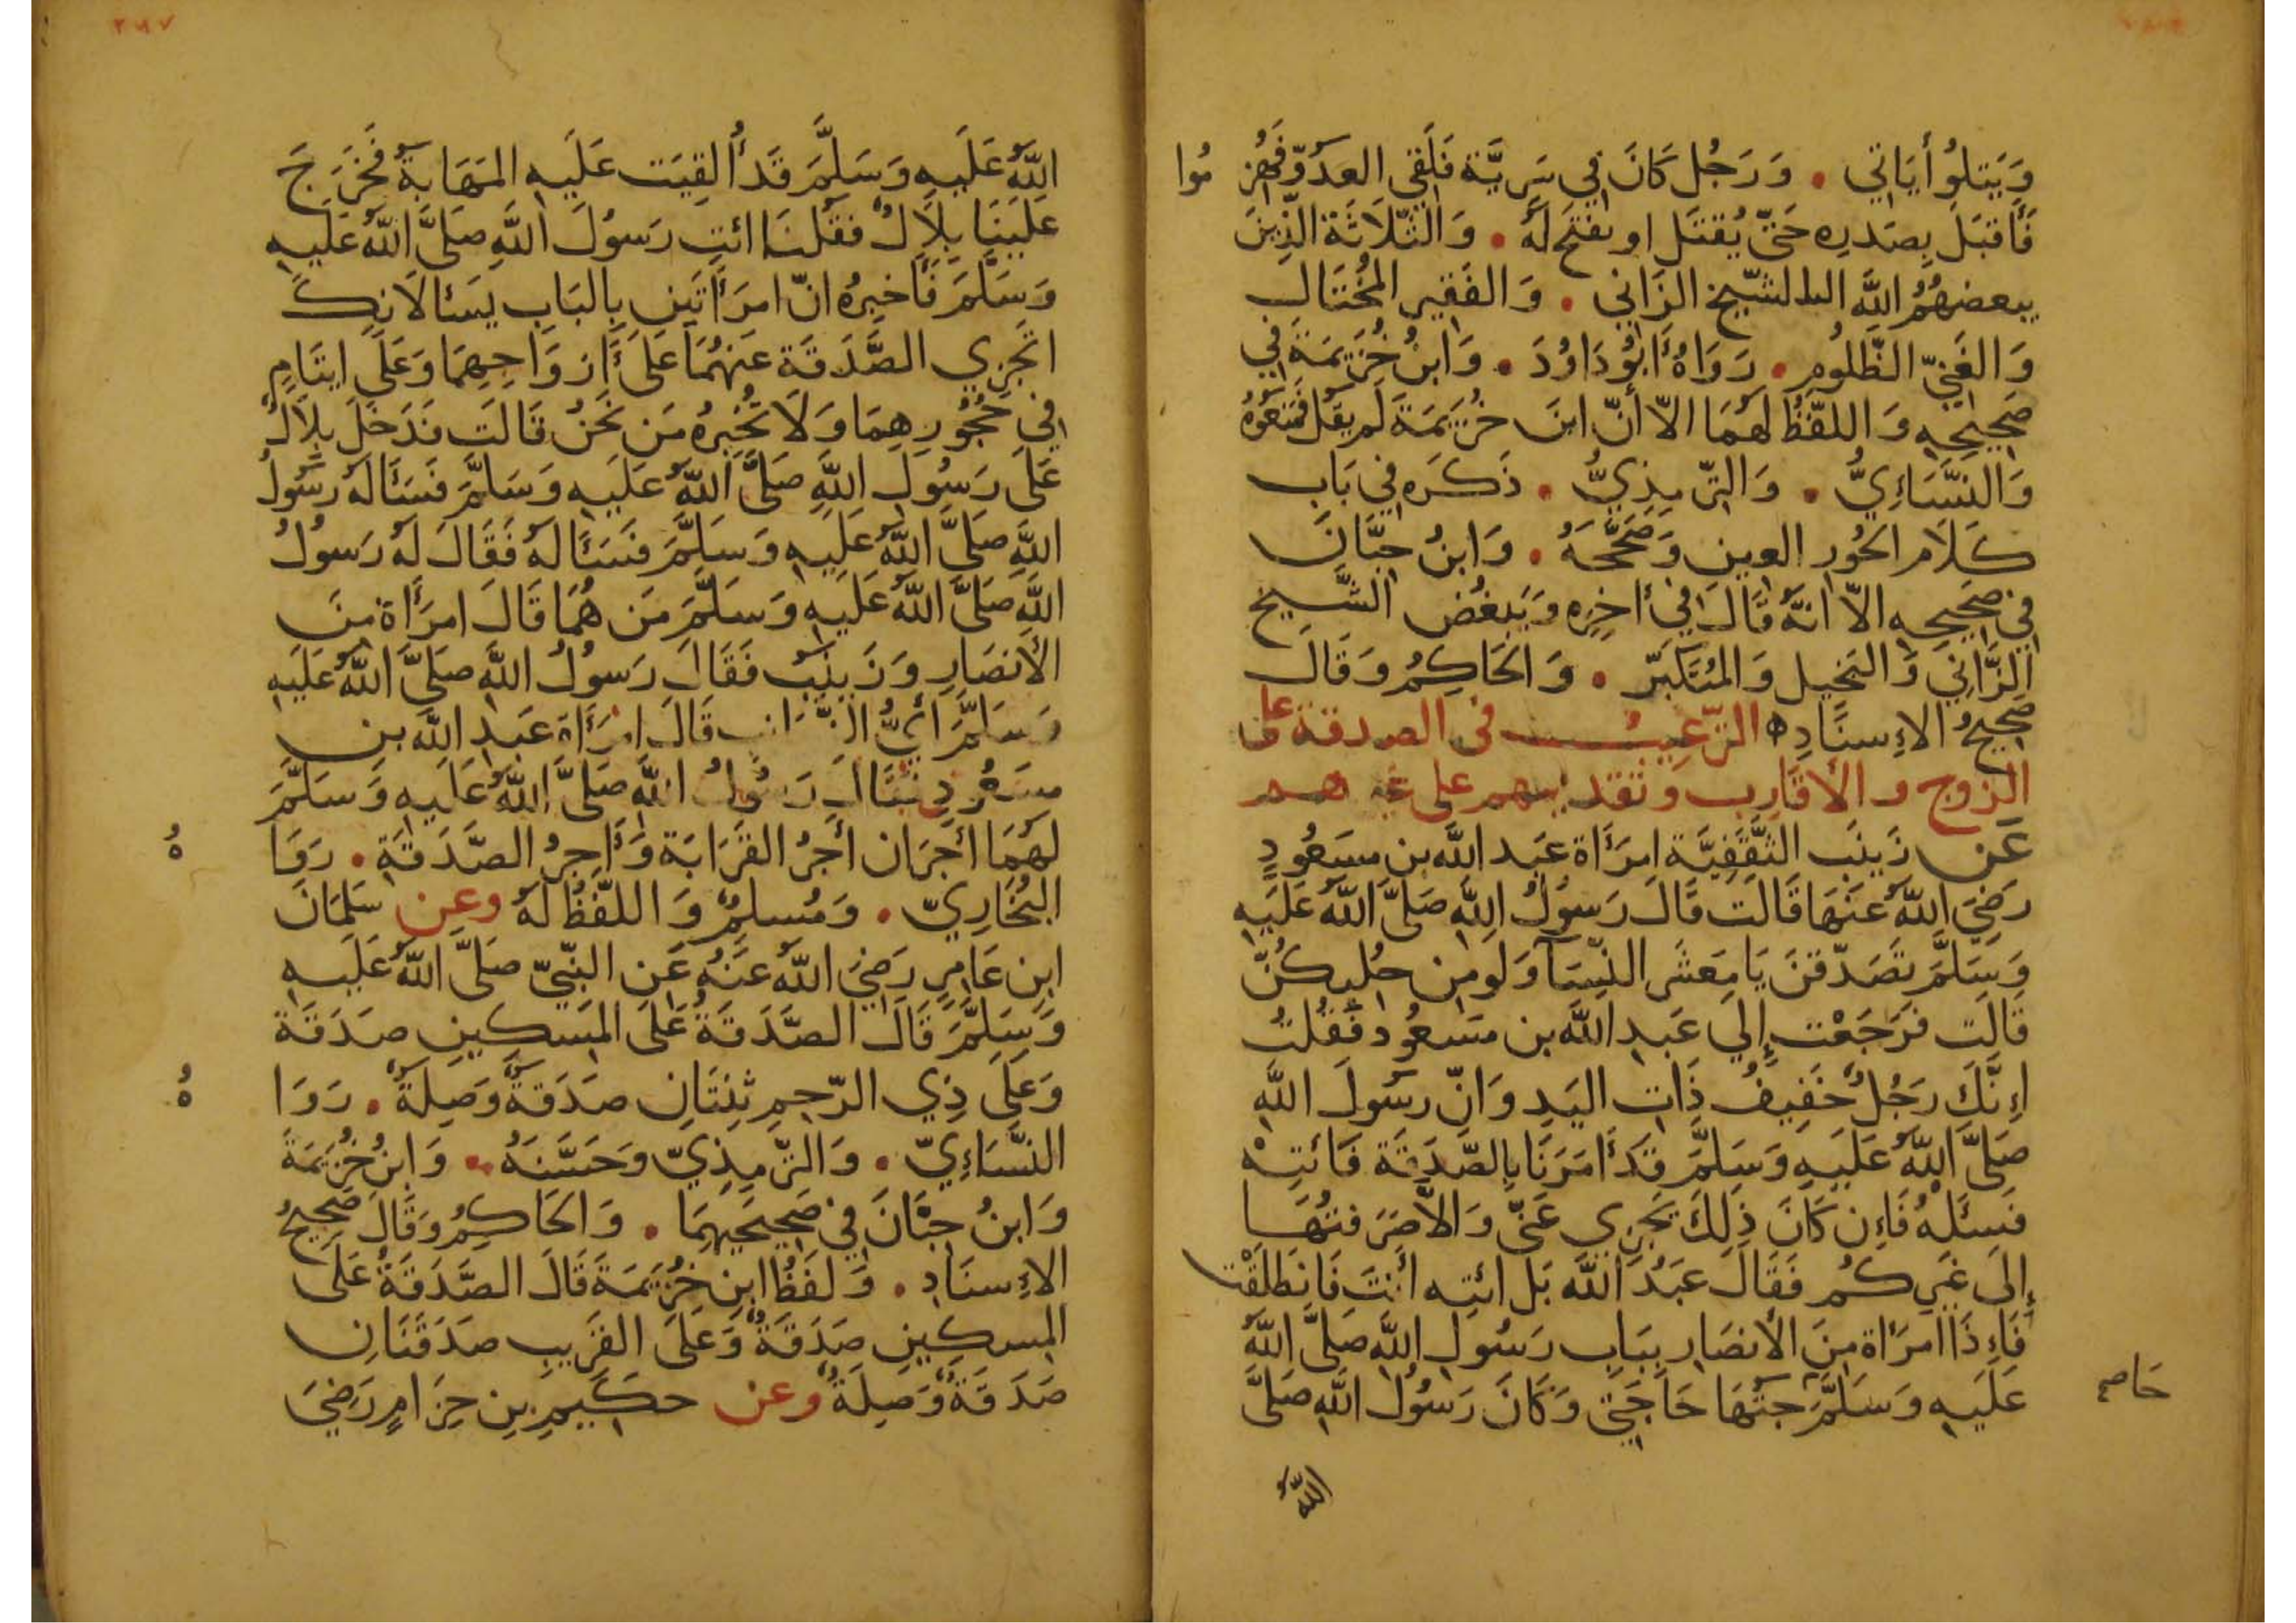 وَيَتلُوا أيَاتي . وَرَجُل كَانَ فِي سَرِيَّة فَلَقي العَدوّ فَهُزِ مُوا
فَأَقبَلَ بِصَدرِه حَتّى يُقتَل او يفتح لَه . وَالثّلَاثَة الّذِينَ
يبغضهُمُ اللَّه الشّيخ الزَاني . وَالفَقِير المُختَال
وَالغَنيّ الظّلُوم . رَوَاهُ أبُو دَاوُدَ . وَابنُ خُزَيمَة فِي
صَحِيحِه وَاللفّظُ لَهُمَا الاّ أنّ ابنَ خُزَيمَةَ لَم يقُل فَمَنَعُوهُ
وَالنّسَاءِيُّ . وَالتّرمِذِيُّ . ذَكَرَه فِي بَابِ
كَلَام الحُورِ العِين وَصَحَّحَهُ . وَابنُ حِبَّانَ
فِي صَحِيحِه الاّ انّهُ قَالَ فِي أخِرِه وَيَبغُض الشَّيخ
الزَّانِي وَالبَخِيل وَالمُتَكَبّر . وَالحَاكِمُ وَقَالَ
صَحِيحُ الاِسنَادِ ه الترَّغِيبُ في الصدقة على
الزوج والأقَارِب وتقديمهم على غيرهم
عَن زَينَب الثّقَفِيَّة اِمرَأَة عَبد اللَّه بن مسَعُودٍ
رَضِيَ اللَّهُ عَنهَا قَالَت قَالَ رَسوُلُ اللَّهِ صَلىَّ اللَّهُ عَلَيهِ
وَسَلَّمَ تَصَدّقنَ يَا مَعشَر النّسَآ وَلَو مِن حُليكُنّ
قَالَت فَرَجَعْت إِلَي عَبدِ اللَّه بن مسَعُود فَقُلتُ
اِنَّكَ رَجُلٌ خَفِيفُ ذَاتِ اليَدِ وَانّ رسُولَ اللَّهِ
صَلىَّ اللَّهُ عَلَيهِ وَسَلَّمَ قَد أَمَرَنَا بِالصَّدَقَة فَائتِهْ
فَسئَلهُ فَاِن كَانَ ذلِكَ يَجزِي عَنّي وَالاَّ صَرَفتُهَا
إِلَى غَيرِكُم فَقَالَ عَبدُ اللَّه بَل ائتِه أنتَ فَانطَلَقْت
فَاِذَا امرَأة مِنَ الأنصَارِ بِبَابِ رَسُولِ اللَّهِ صَلىَّ اللَّهُ
عَلَيهِ وَسَلَّمَ جتُهَا حَاجَتِي وَكَانَ رَسُولُ اللَّهِ صَلىَّ
حَاصم
اللَّهُ
٢٩٧
اللَّهُ عَلَيهِ وَسَلَّمَ قَد أُلقِيَت عَلَيهِ المَهَابَةُ فَخَرَجَ
عَلَينَا بِلَالٌ فقُلنَا ائتِ رَسُولَ اللَّهِ صَلىَّ اللَّهُ عَلَيهِ
وَسَلَّمَ فَأخبِرُهُ انّ امرَأَتَينِ بِالبَابِ يَسئَالَانِكَ
اتَجزِي الصَّدَقَة عَنهُمَا عَلىَ أَزوَاجِهِمَا وَعَلَى ايتَامٍ
فِي حُجُورِهِمَا وَلَا تُخبِرهُ مَن نَحنُ قَالَت فَدَخَلَ بِلَالٌ
عَلَى رَسُولِ اللَّهِ صَلىَّ اللَّهُ عَلَيهِ وَسَلَّمَ فَسَئَالَهُ رَسُولُ
اللَّهِ صَلىَّ اللَّهُ عَلَيهِ وَسَلَّمَ فَسَئَالَهُ فَقَالَ لَهُ رَسُولُ
اللَّهِ صَلىَّ اللَّهُ عَلَيهِ وَسَلَّمَ مَن هُمَا قَالَ امرَأَة مِنَ
الأَنصَارِ وَزَينَب فَقَالَ رَسُولُ اللَّهِ صَلىَّ اللَّهُ عَلَيهِ
وَسَلَّمَ أيُّ الزّيَانِب قَالَ امرَأَة عَبدِ اللَّهِ بنِ
مسَعُودِ فَقَالَ رَسُولُ اللَّهِ صَلىَّ اللَّهُ عَلَيهِ وَسَلَّمَ
لَهُمَا أجرَان أجرُ القَرَابَة وَأَجرُ الصَّدَقَةِ . رَوَا هُ
البُخَارِيّ . وَمُسلِمٌ وَاللفّظُ لَهُ وعن سَلمَانَ
ابنِ عَامِرٍ رَضِيَ اللَّهُ عَنهُ عَنِ النَّبيّ صَلىَّ اللَّهُ عَلَيهِ
وَسَلَّمَ قَالَ الصَّدَقَةُ عَلَى المِسكِينِ صَدَقَة
وَعَلَى ذِي الرّحِمِ ثِنتَانِ صَدَقَةٌ وَصِلَةٌ . رَوَا هُ
النّسَاءِيّ . وَالتّرمِذِيّ وَحَسَّنَهُ . وَابنُ خُزَيمَةَ
وَابنُ حِبّانَ فِي صَحِيحَيهِمَا . وَالحَاكِمُ وَقَالَ صَحِيحُ
الاِسنَادِ . وَلَفظُ ابنِ خُزَيمَةَ قَالَ الصَّدَقَةُ عَلَى
المِسكِينِ صَدَقَةٌ وَعَلَى القَرِيبِ صَدَقَتَانِ
صَدَقَةٌ وَصِلَةٌ وعن حكِيمِ بنِ حِزَامٍ رَضِيَ